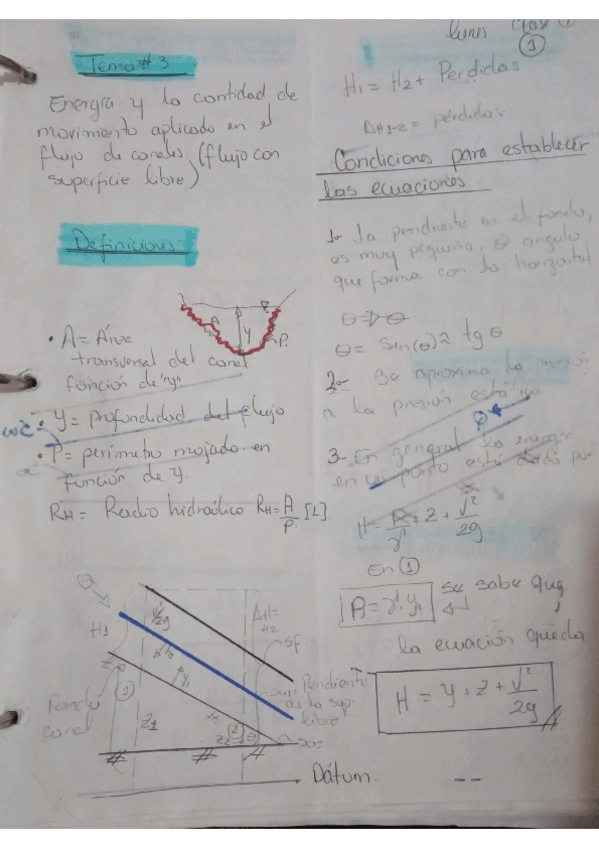 Tema # 3
Energía y la cantidad de
movimiento aplicado en el
flujo de canales (flujo con
superficie libre)
Definiciones
A
y
P.
• A = Área
transversal del canal
función de "y"
• y = profundidad del flujo
• P = perimetro mojado en
función de y.
RH = Radio hidraólico RH = A/P [L]
θ
V²/2g
H1
y1
Sf
Fondo
canal
(1)
Z1
(2)
Pendiente
de la sup.
libre
Dátum.
lunes Clase
①
H1 = H2 + Perdidas
ΔH1-2 = perdidas
Condiciones para establecer
las ecuaciones
1- La pendiente en el fondo,
es muy pequeña, θ angulo
que forma con la horizontal
θ = sen(θ) ≈ tg θ
2- Se aproxima la presión
a la presión estática
3- En general la energía
en un punto está dada por
H = P/γ + z + V²/2g
En ①
P1 = γ · y1 se sabe que,
la ecuación queda
H = y + z + V²/2g